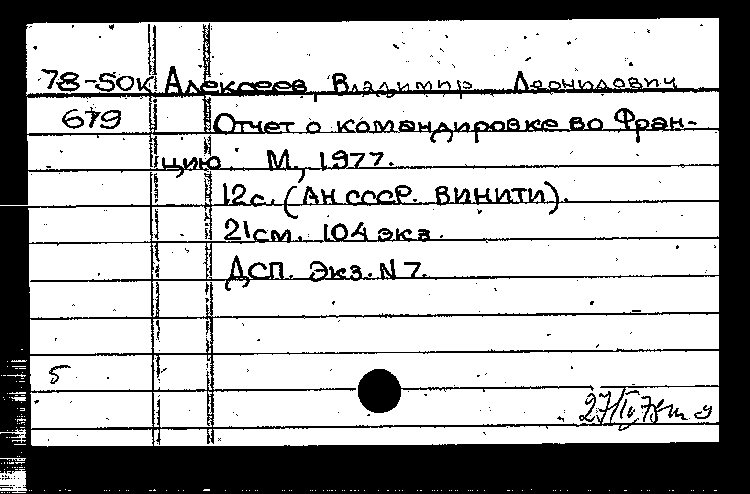 78-5ок Алексеев, Владимир Леонидович
679 Отчет о командировке во Фран-
цию. М., 1977.
12с. (АН СССР. ВИНИТИ).
21см. 104 экз.
ДСП. Экз. N 7.
5